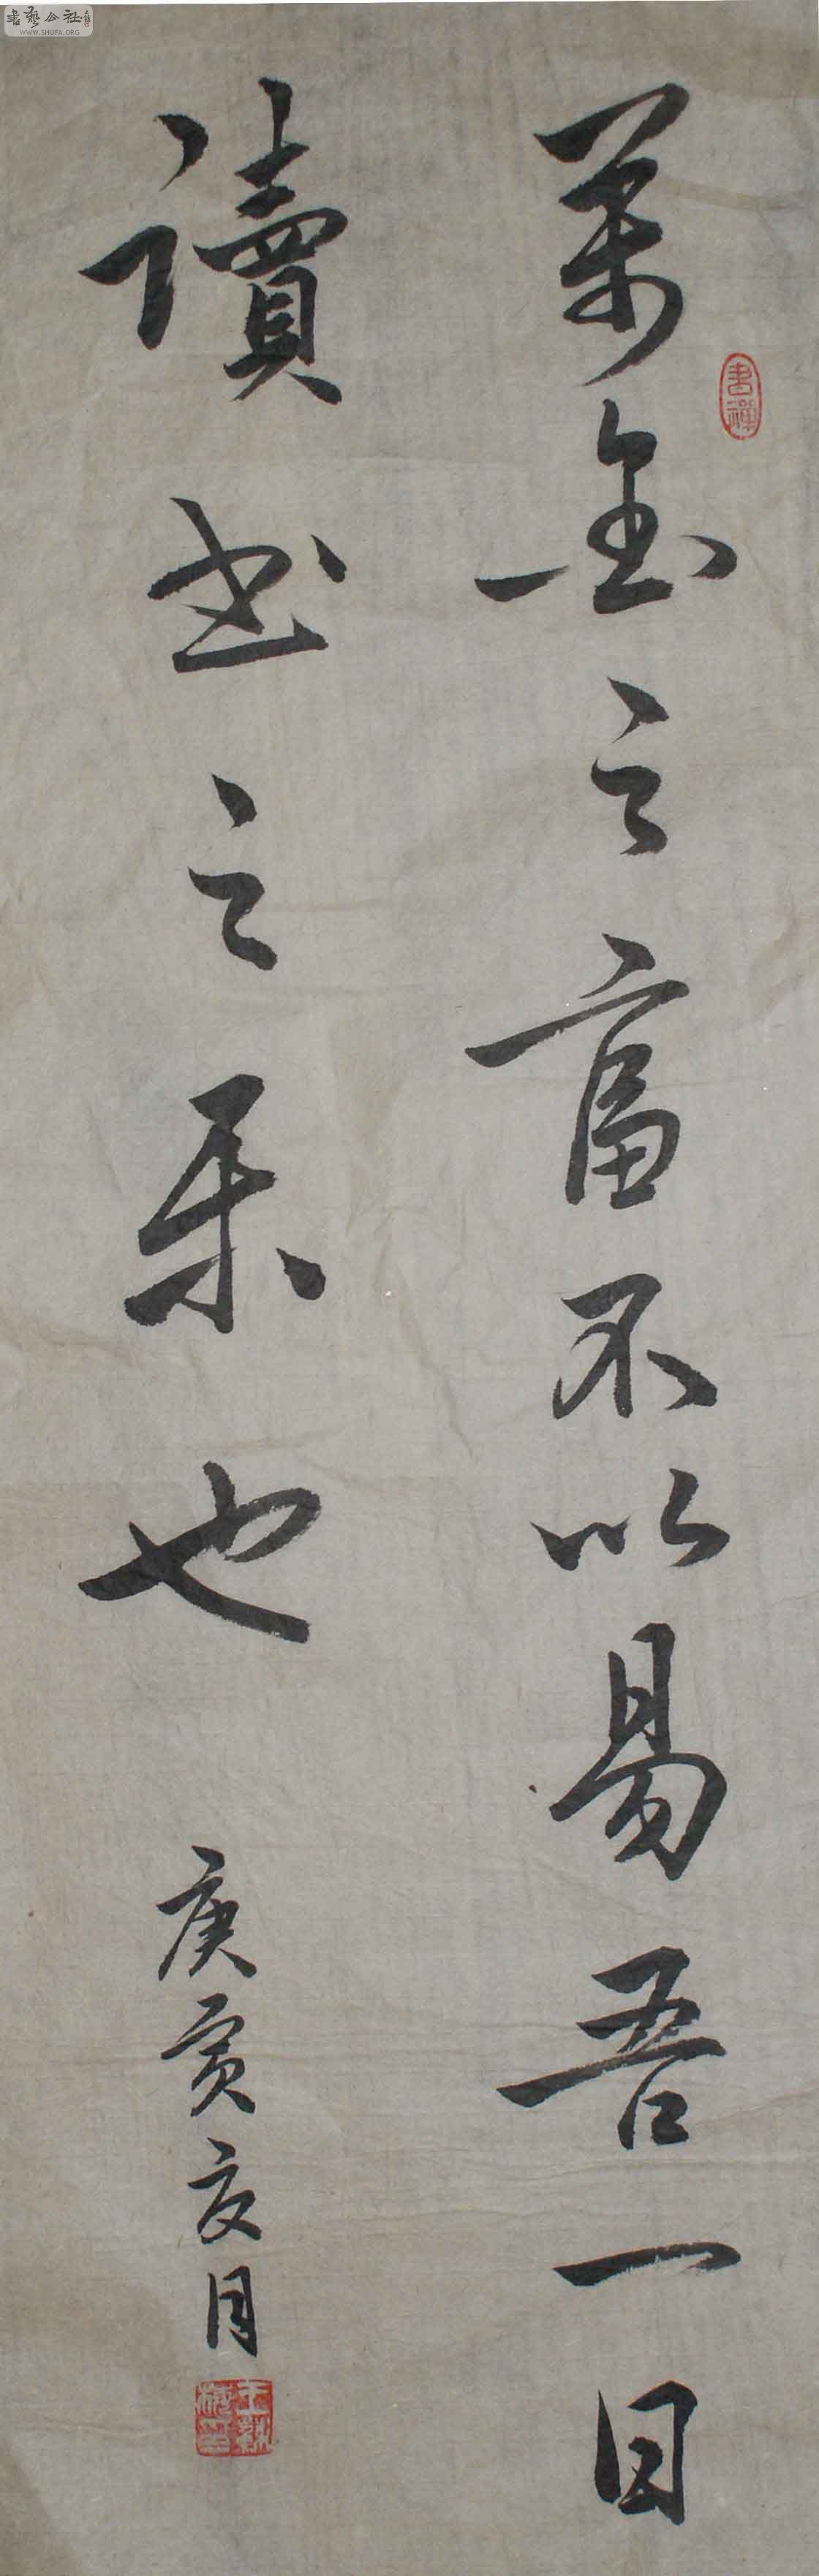 萬金之富不以易吾一日
讀书之樂也
庚寅夏月
書禪
書藝公社
WWW.SHUFA.ORG